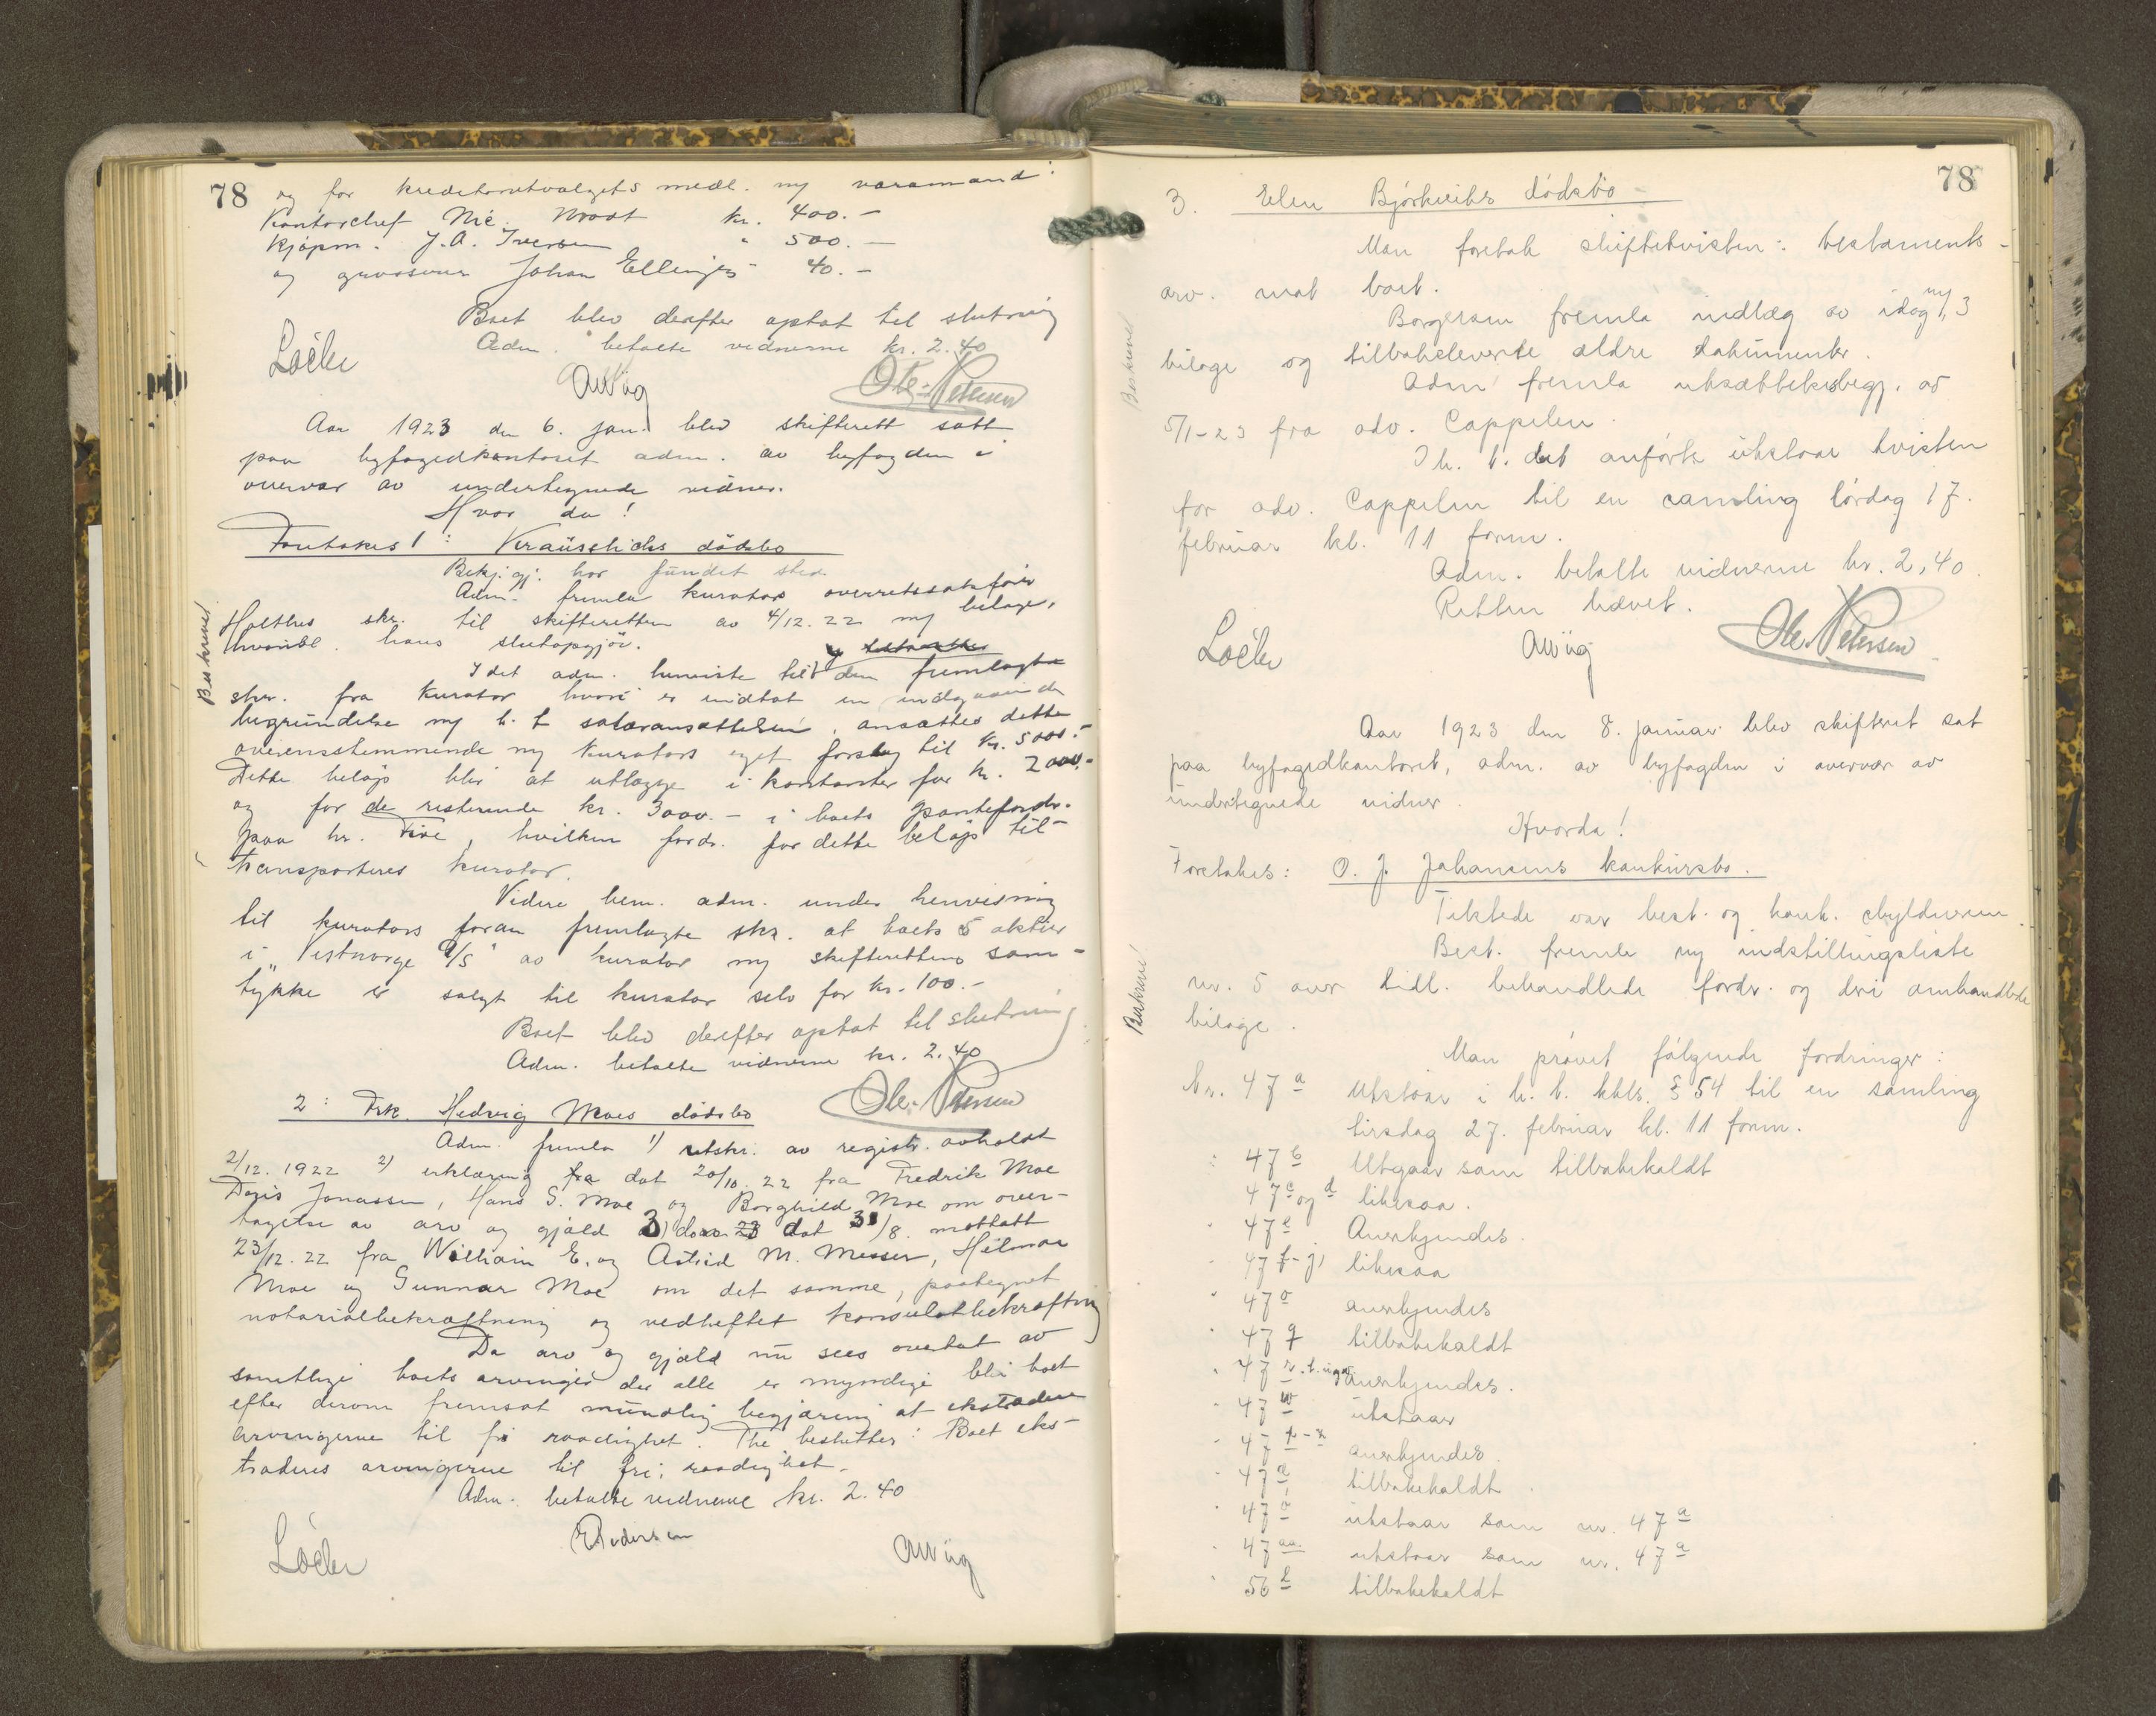 78
og for kreditorutvalgets medl. my varamand:
Kontorchef Nic. kr. 400.-
Kjøpm. J. A. Iversen " 500.-
og grosserer Johan Ellingsen 40.-
Boet blev derefter optat til slutning
Adm. betalte vidnerne kr. 2.40
Aar 1923 den 6. jan. blev skifterett satt
paa byfogedkontoret adm. av byfogden i
overvær av undertegnede vidner.
Hvor da!
Foretokes 1: dødsbo
Bekj.gj. har fundet sted.
Adm. fremla kurators overretssakfører
Holthes skr. til skifteretten av 4/12. 22 my bilage,
hvoribl. hans slutopgjør.
I det adm. henviste til den fremlagte
Beskrevet
skr. fra kurator hvori er indtat en indgaaende
begrundelse my h. t salæransættelsen, ansættes dette
overensstemmende my kurators eget forslag til kr. 5000.-
Dette beløp blir at utlægge i kontanter for kr. 2000.-
og for de resterende kr. 3000.- i boets pantefordr.
paa hr. , hvilken fordr. for dette beløp til-
transporteres kurator.
Videre bem. adm. under henvisning
til kurators foran fremlagte skr. at boets 5 aktier
i "Vestnorge A/S" av kurator my skifterettens sam-
tykke er solgt til kurator selv for kr. 100.-
Boet blev derefter optat til slutning
Adm. betalte vidnerne kr. 2.40
Ole Petersen
2: Frk. Hedvig Moes dødsbo
Adm. fremla 1) utskr. av registr. avholdt
2/12. 1922 2) erklæring fra dat 20/10. 22 fra Fredrik Moe
Jonassen, Hans S. Moe og Borghild Moe om over-
tagelse av arv og gjæld 3) do dat 31/8. mottatt
23/12. 22 fra William E. og Astrid M. Messer, Hilmar
Moe og Gunnar Moe om det samme, paategnet
notarialbekræftning og vedheftet konsulatbekræftning
Da arv og gjæld nu sees overtat av
samtlige boets arvinger der alle er myndige blir boet
efter derom fremsat mundtlig begjæring at ekstradere
arvingerne til fri raadighet. The besluttes: Boet eks-
traderes arvingerne til fri raadighet.
Adm. betalte vidnerne kr. 2.40
78
3. Elen dødsbo
Man foretok skiftetvisten: testaments-
arv. mot boet.
Borgersen fremla indlæg av idag my 3
bilage og tilbakeleverte ældre dokumenter.
Beskrevet
Adm fremla utsættelsesbegj. av
5/1-23 fra adv. Cappelen.
I h. t. det anførte utstaar tvisten
for adv. Cappelen til en samling lørdag 17.
februar kl. 11 form.
Adm. betalte vidnerne kr. 2,40.
Retten hævet.
Ole Petersen
Aar 1923 den 8. januar blev skifteret sat
paa byfogedkontoret, adm. av byfogden i overvær av
undertegnede vidner.
Hvorda!
Foretakes: O. J. Johansens konkursbo.
Tilstede var best. og konk. skyldneren.
Best. fremla ny indstillingsliste
nr. 5 over tidl. behandlede fordr. og deri omhandlede
Beskrevet
bilage.
Man prøvet følgende fordringer:
Nr. 47 a Utstaar i h. t. kkls. § 54 til en samling
tirsdag 27. februar kl. 11 form.
" 47 b Utgaar som tilbakekaldt
47 c og d likesaa.
" 47 e Anerkjendes.
" 47 f-j likesaa
" 47 o anerkjendes
" 47 q tilbakekaldt
" 47 anerkjendes.
" 47 w utstaar
" 47 anerkjendes.
" 47 tilbakekaldt.
" 47 utstaar som nr. 47 a
" 47 aa. utstaar som nr. 47 a
" 56 tilbakekaldt